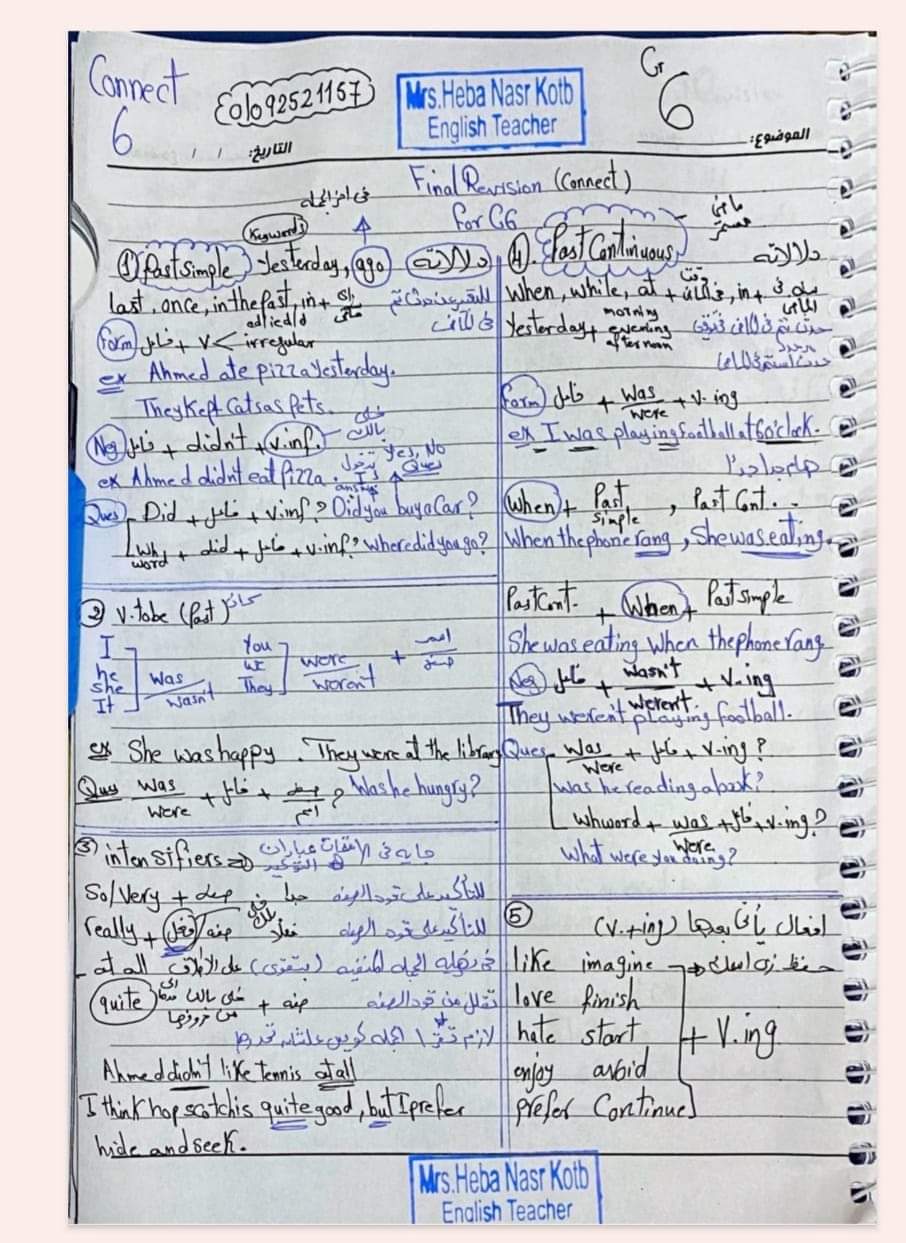 Connect
6
01092521157
Mrs.Heba Nasr Kotb
English Teacher
Gr
6
التاريخ: / /
الموضوع:
Final Revision (Connect)
for G6
Keywords
① Past Simple Yesterday, ago دلالاته
last, once, in the past, in +
ed/ied/d
Form فاعل + V < irregular
ex Ahmed ate pizza Yesterday.
They Kept Cats as Pets.
Neg فاعل + didn't + v.inf.
خلى بالك
ex Ahmed didn't eat pizza.
Yes, No Ques
Ques Did + فاعل + v.inf? Did you buy a Car?
Wh word + did + فاعل + v.inf? where did you go?
② V. to be (Past) كان
I
he
she
It
Was
wasn't
You
we
They
were
weren't
+ اسم
صفة
ex She was happy. They were at the library
Ques Was
Were
+ فاعل + صفة
اسم
? Was he hungry?
③ intensifiers
So/Very + صفة جداً للتأكيد على قوة الصفة
really + فعل / صفة فعلاً للتأكيد على قوة الصفة
at all على الإطلاق
quite خلى بالك + صفة تقلل من قوة الصفة
Ahmed didn't like tennis at all
I think hop scotch is quite good, but I prefer
hide and seek.
④. Past Continuous
ماضى مستمر
دلالاته
When, while, at + وقت
Yesterday + morning
evening
afternoon
Form فاعل + Was
were
+ v-ing
ex I was playing football at 6 o'clock.
هام جداً
When + Past
simple
, Past Cont..
When the phone rang, She was eating.
Past Cont. + When + Past simple
She was eating When the phone rang
Neg فاعل + wasn't
weren't
+ V-ing
They weren't playing football.
Ques Was
Were
+ فاعل + V-ing?
Was he reading a book?
Wh word + was
were
+ فاعل + v-ing?
What were you doing?
⑤ افعال يأتى بعدها (V.+ing)
like imagine
love finish
hate start + V.ing
enjoy avoid
prefer Continue
Mrs.Heba Nasr Kotb
English Teacher